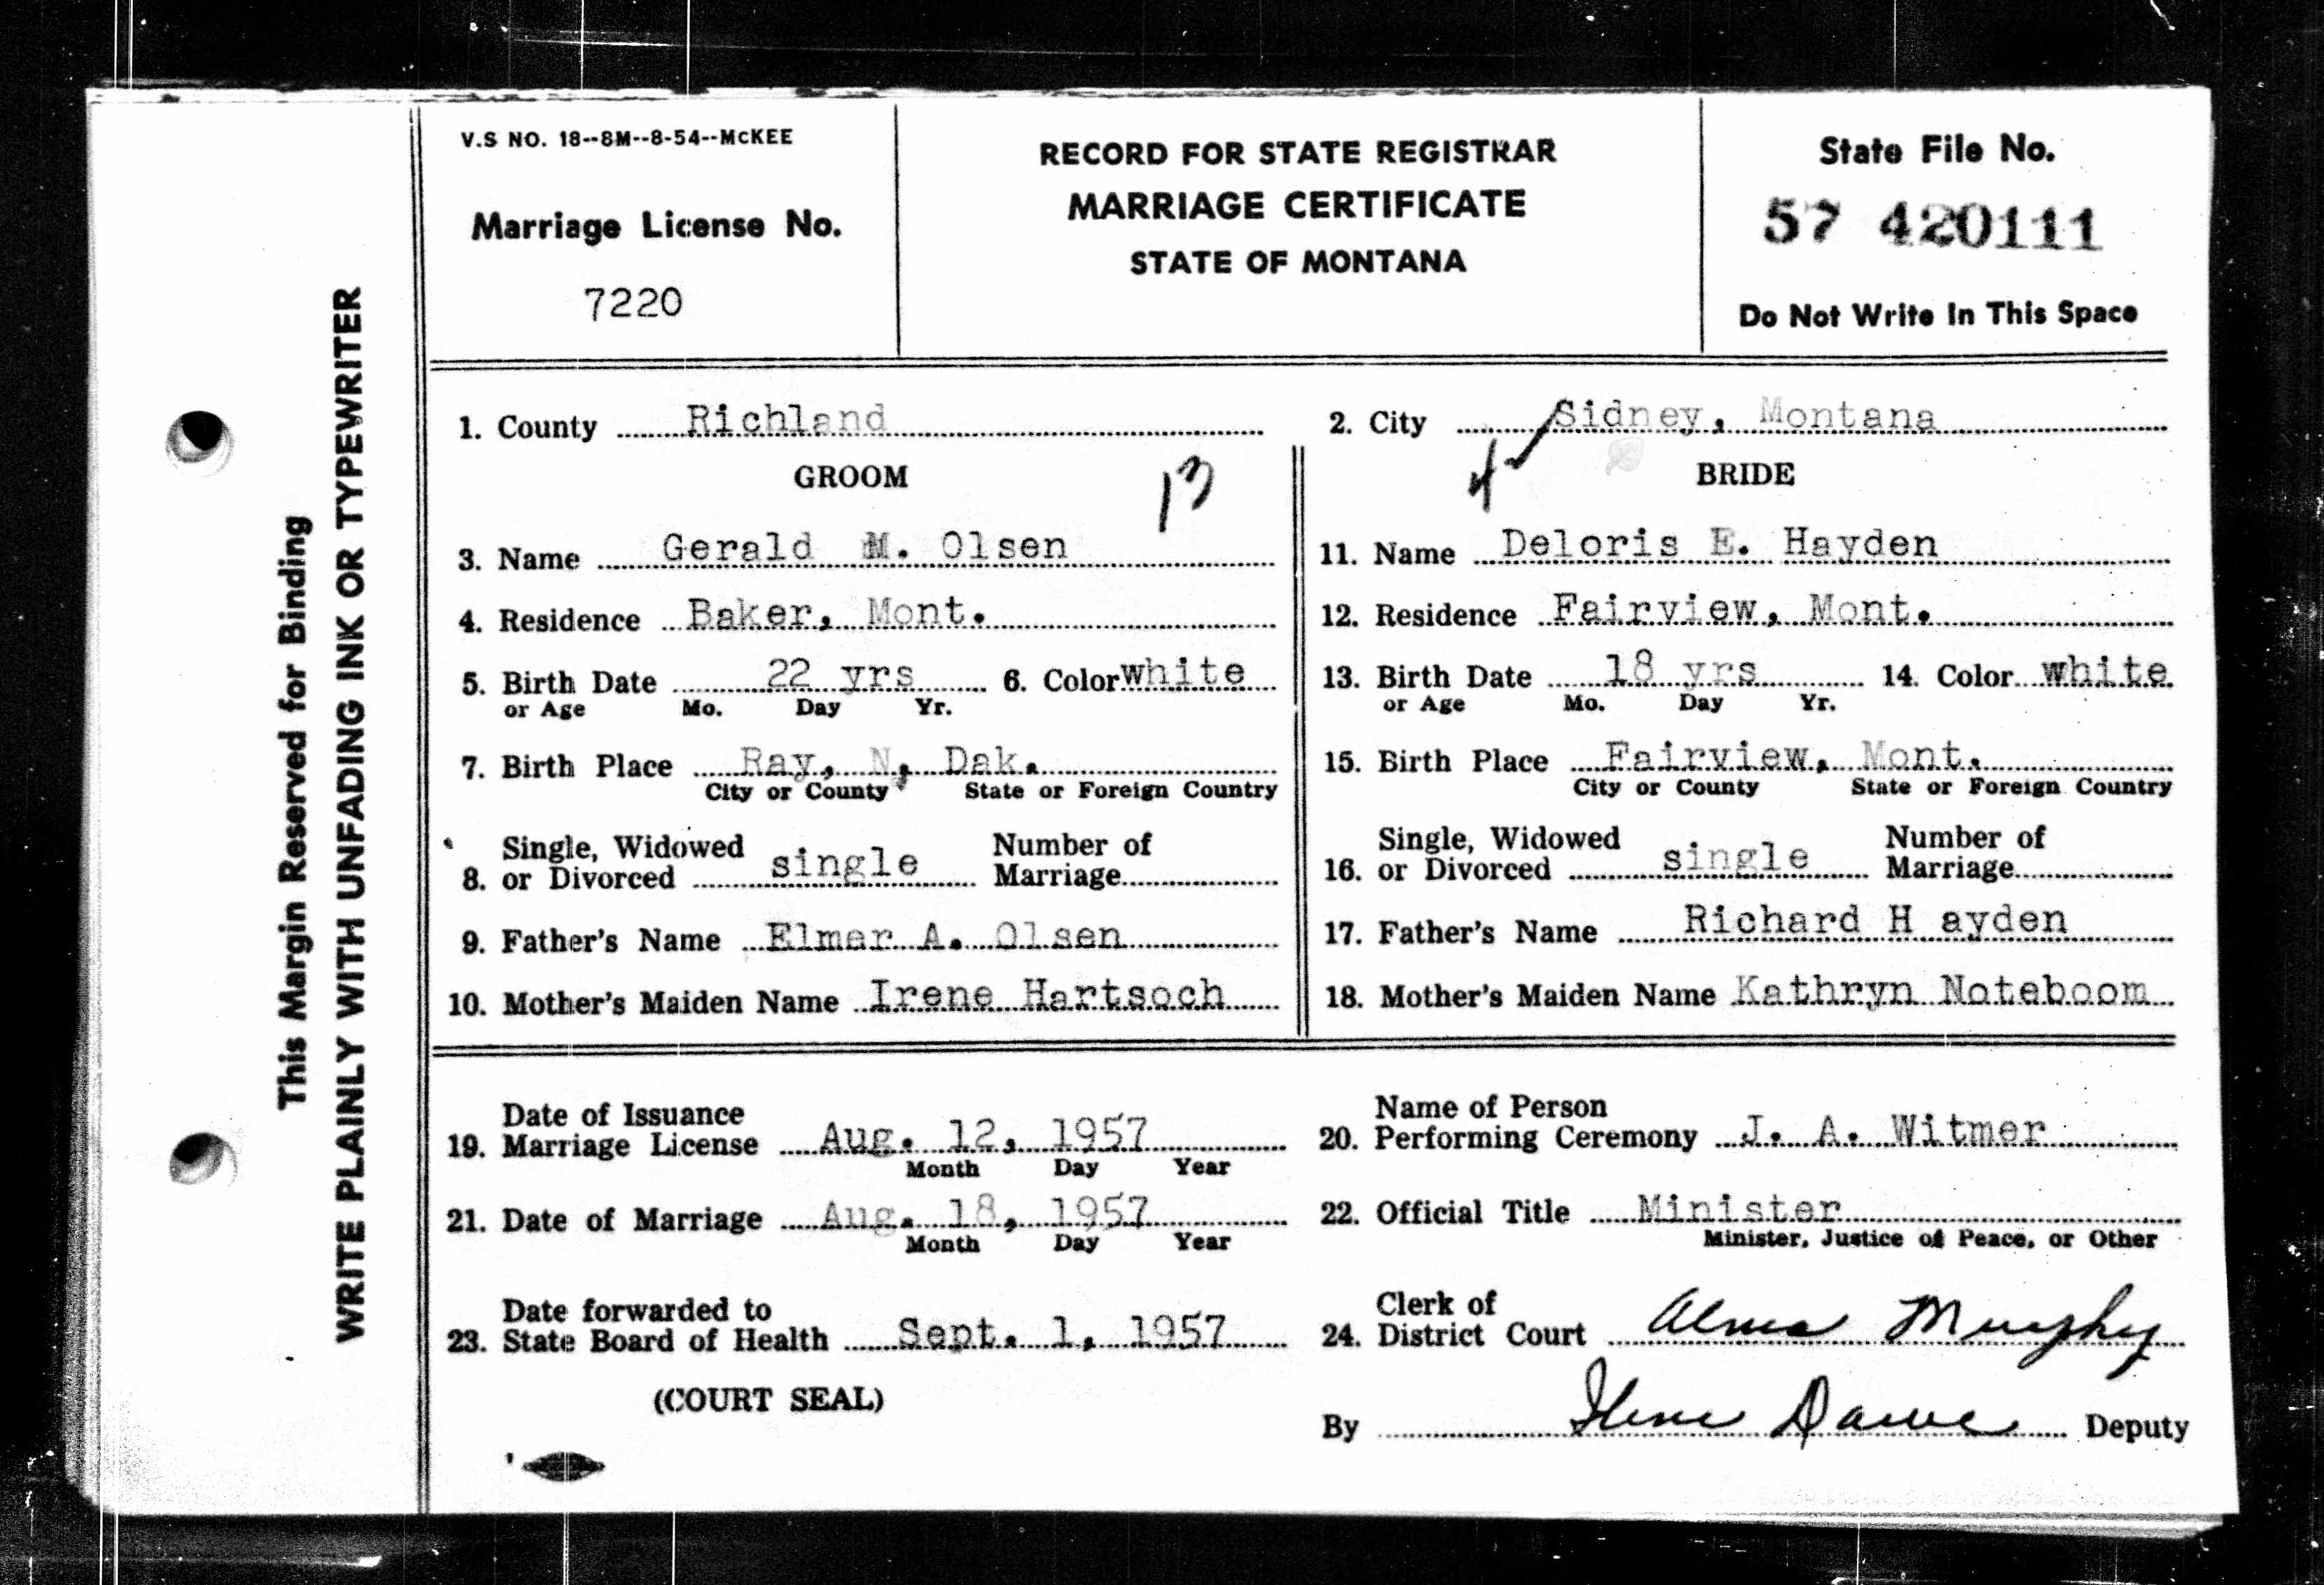 V.S NO. 18--8M--8-54--McKEE
Marriage License No.
7220
RECORD FOR STATE REGISTRAR
MARRIAGE CERTIFICATE
STATE OF MONTANA
State File No.
57 420111
Do Not Write In This Space
This Margin Reserved for Binding
WRITE PLAINLY WITH UNFADING INK OR TYPEWRITER
1. County Richland
2. City Sidney, Montana
GROOM 13
4 BRIDE
3. Name Gerald M. Olsen
4. Residence Baker, Mont.
5. Birth Date 22 yrs 6. Color white
or Age Mo. Day Yr.
7. Birth Place Ray, N, Dak.
City or County State or Foreign Country
Single, Widowed Number of
8. or Divorced single Marriage
9. Father's Name Elmer A. Olsen
10. Mother's Maiden Name Irene Hartsoch
11. Name Deloris E. Hayden
12. Residence Fairview, Mont.
13. Birth Date 18 yrs 14. Color white
or Age Mo. Day Yr.
15. Birth Place Fairview, Mont.
City or County State or Foreign Country
Single, Widowed Number of
16. or Divorced single Marriage
17. Father's Name Richard H ayden
18. Mother's Maiden Name Kathryn Noteboom
Date of Issuance
19. Marriage License Aug. 12, 1957
Month Day Year
Name of Person
20. Performing Ceremony J. A. Witmer
21. Date of Marriage Aug. 18, 1957
Month Day Year
22. Official Title Minister
Minister, Justice of Peace, or Other
Date forwarded to
23. State Board of Health Sept. 1, 1957
(COURT SEAL)
Clerk of
24. District Court Alma Murphy
By Ilene Dawe Deputy